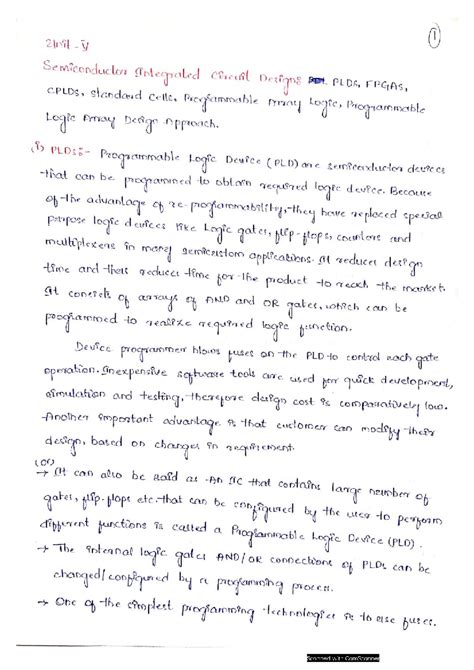 1
Unit - V
Semiconductor Integrated Circuit Designs PLDs, FPGAs,
CPLDs, Standard Cells, Programmable Array Logic, Programmable
Logic Array Design Approach.
(i) PLDs:- Programmable Logic Device (PLD) are semiconductor devices
that can be programmed to obtain required logic device. Because
of the advantage of re-programmability, they have replaced special
purpose logic devices like Logic gates, flip-flops, counters and
multiplexers in many semicustom applications. It reduces design
time and thus reduces time for the product to reach the market.
It consists of arrays of AND and OR gates, which can be
programmed to realize required logic function.
Device programmer blows fuses on the PLD to control each gate
operation. Inexpensive software tools are used for quick development,
simulation and testing, therefore design cost is comparatively low.
Another important advantage is that customer can modify their
design, based on changes in requirement.
(or)
→ It can also be said as -An IC that contains large number of
gates, flip-flops etc. that can be configured by the user to perform
different functions is called a Programmable Logic Device (PLD).
→ The internal logic gates AND/OR connections of PLDs can be
changed/configured by a programming process.
→ One of the simplest programming technologies is to use fuses.
Scanned with CamScanner